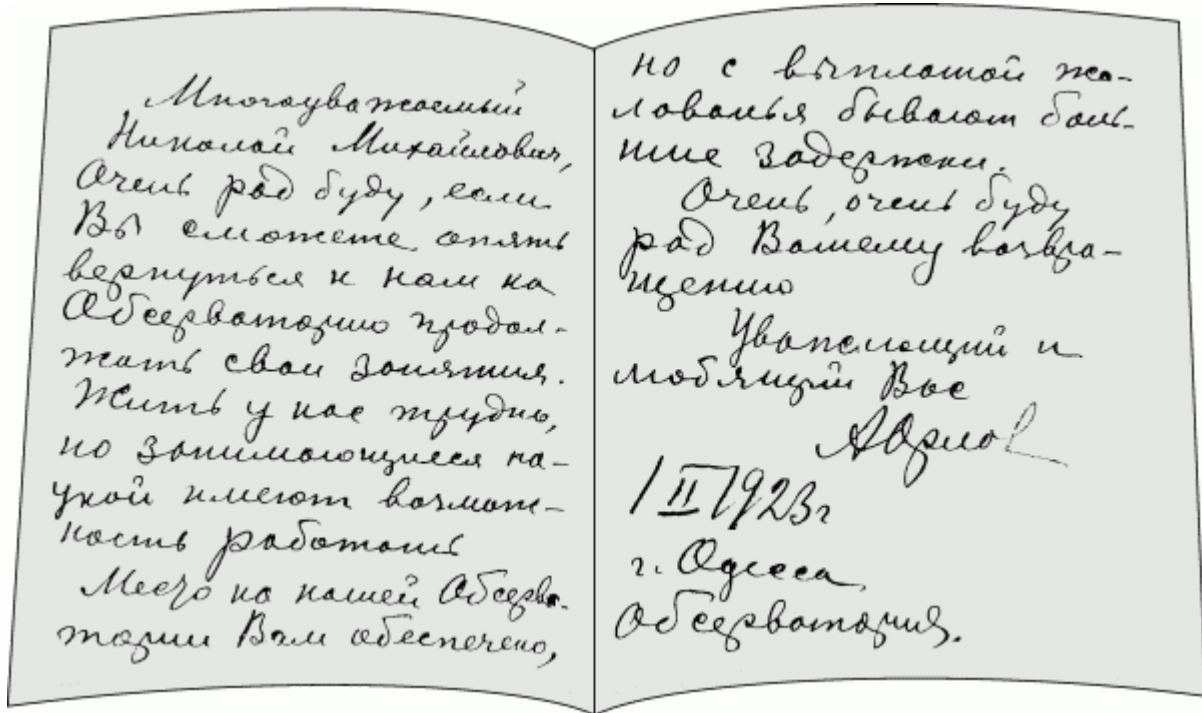 Многоуважаемый
Николай Михайлович,
Очень рад буду, если
Вы сможете опять
вернуться к нам на
Обсерваторию продол-
жать свои занятия.
Жить у нас трудно,
но занимающиеся на-
укой имеют возмож-
ность работать
Место на нашей Обсерва-
тории Вам обеспечено,
но с выплатой жа-
лованья бывают боль-
шие задержки.
Очень, очень буду
рад Вашему возвра-
щению
Уважающий и
любящий Вас
АОрлов
1 II 1923г
г. Одесса
Обсерватория.